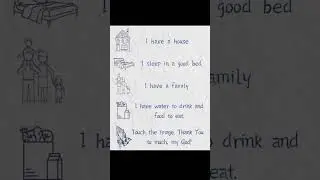 I have a house
I sleep in a good bed
I have a family
I have water to drink and
food to eat.
Touch the Image, Thank You
so much, my God!
a good bed
family
I
to drink and
eat.